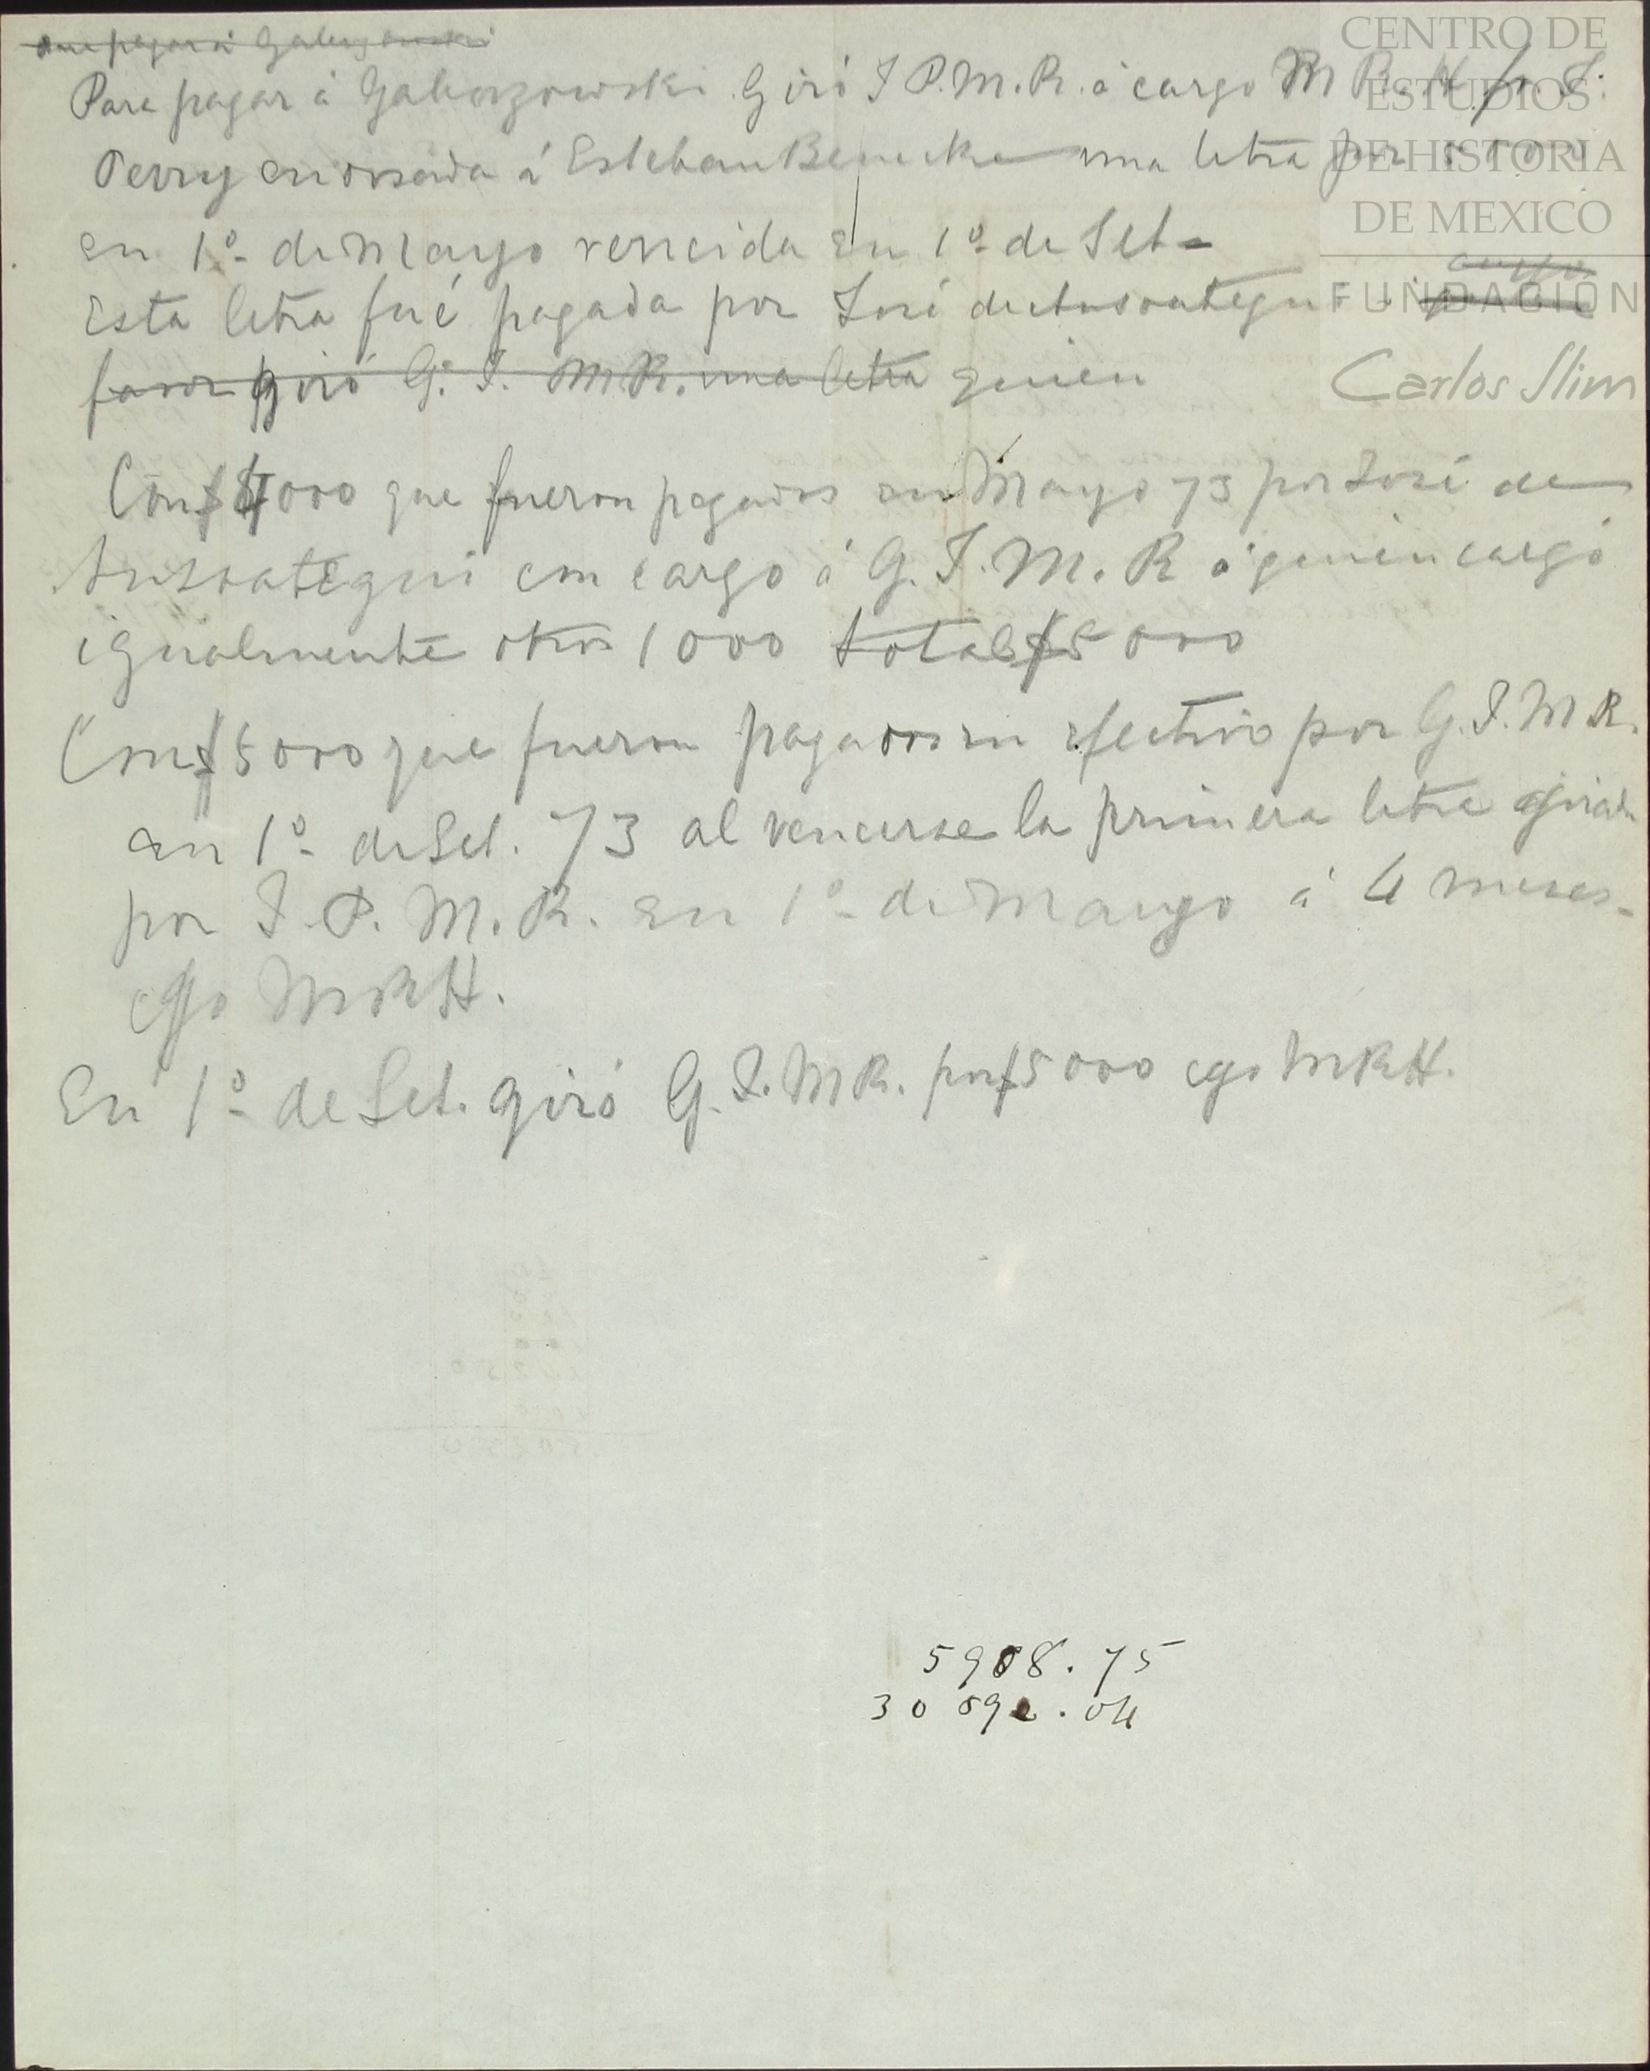 Para pagar á Gaborzowski Giró I P. M. R. á cargo M R. H
Perry endosada á Esteban Benecke una letra por
en 1º de Mayo vencida en 1º de Set=
Esta letra fué pagada por José de Ansoategui
favor giró G. I. M R. una letra quien
Con $4000 que fueron pagados en Mayo 73 por José de
Ansoategui con cargo á G. I. M. R á quien cargó
igualmente otros 1000 total $5000
Con $5000 que fueron pagados en efectivo por G. I. M R.
en 1º de Set. 73 al vencerse la primera letra girada
por I. P. M. R. en 1º de Mayo á 4 meses
cgo M R H.
En 1º de Set. giró G. I. M R. por $5000 cgo M R H.
5908.75
30 892.04
CENTRO DE
ESTUDIOS
DE HISTORIA
DE MEXICO
FUNDACIÓN
Carlos Slim